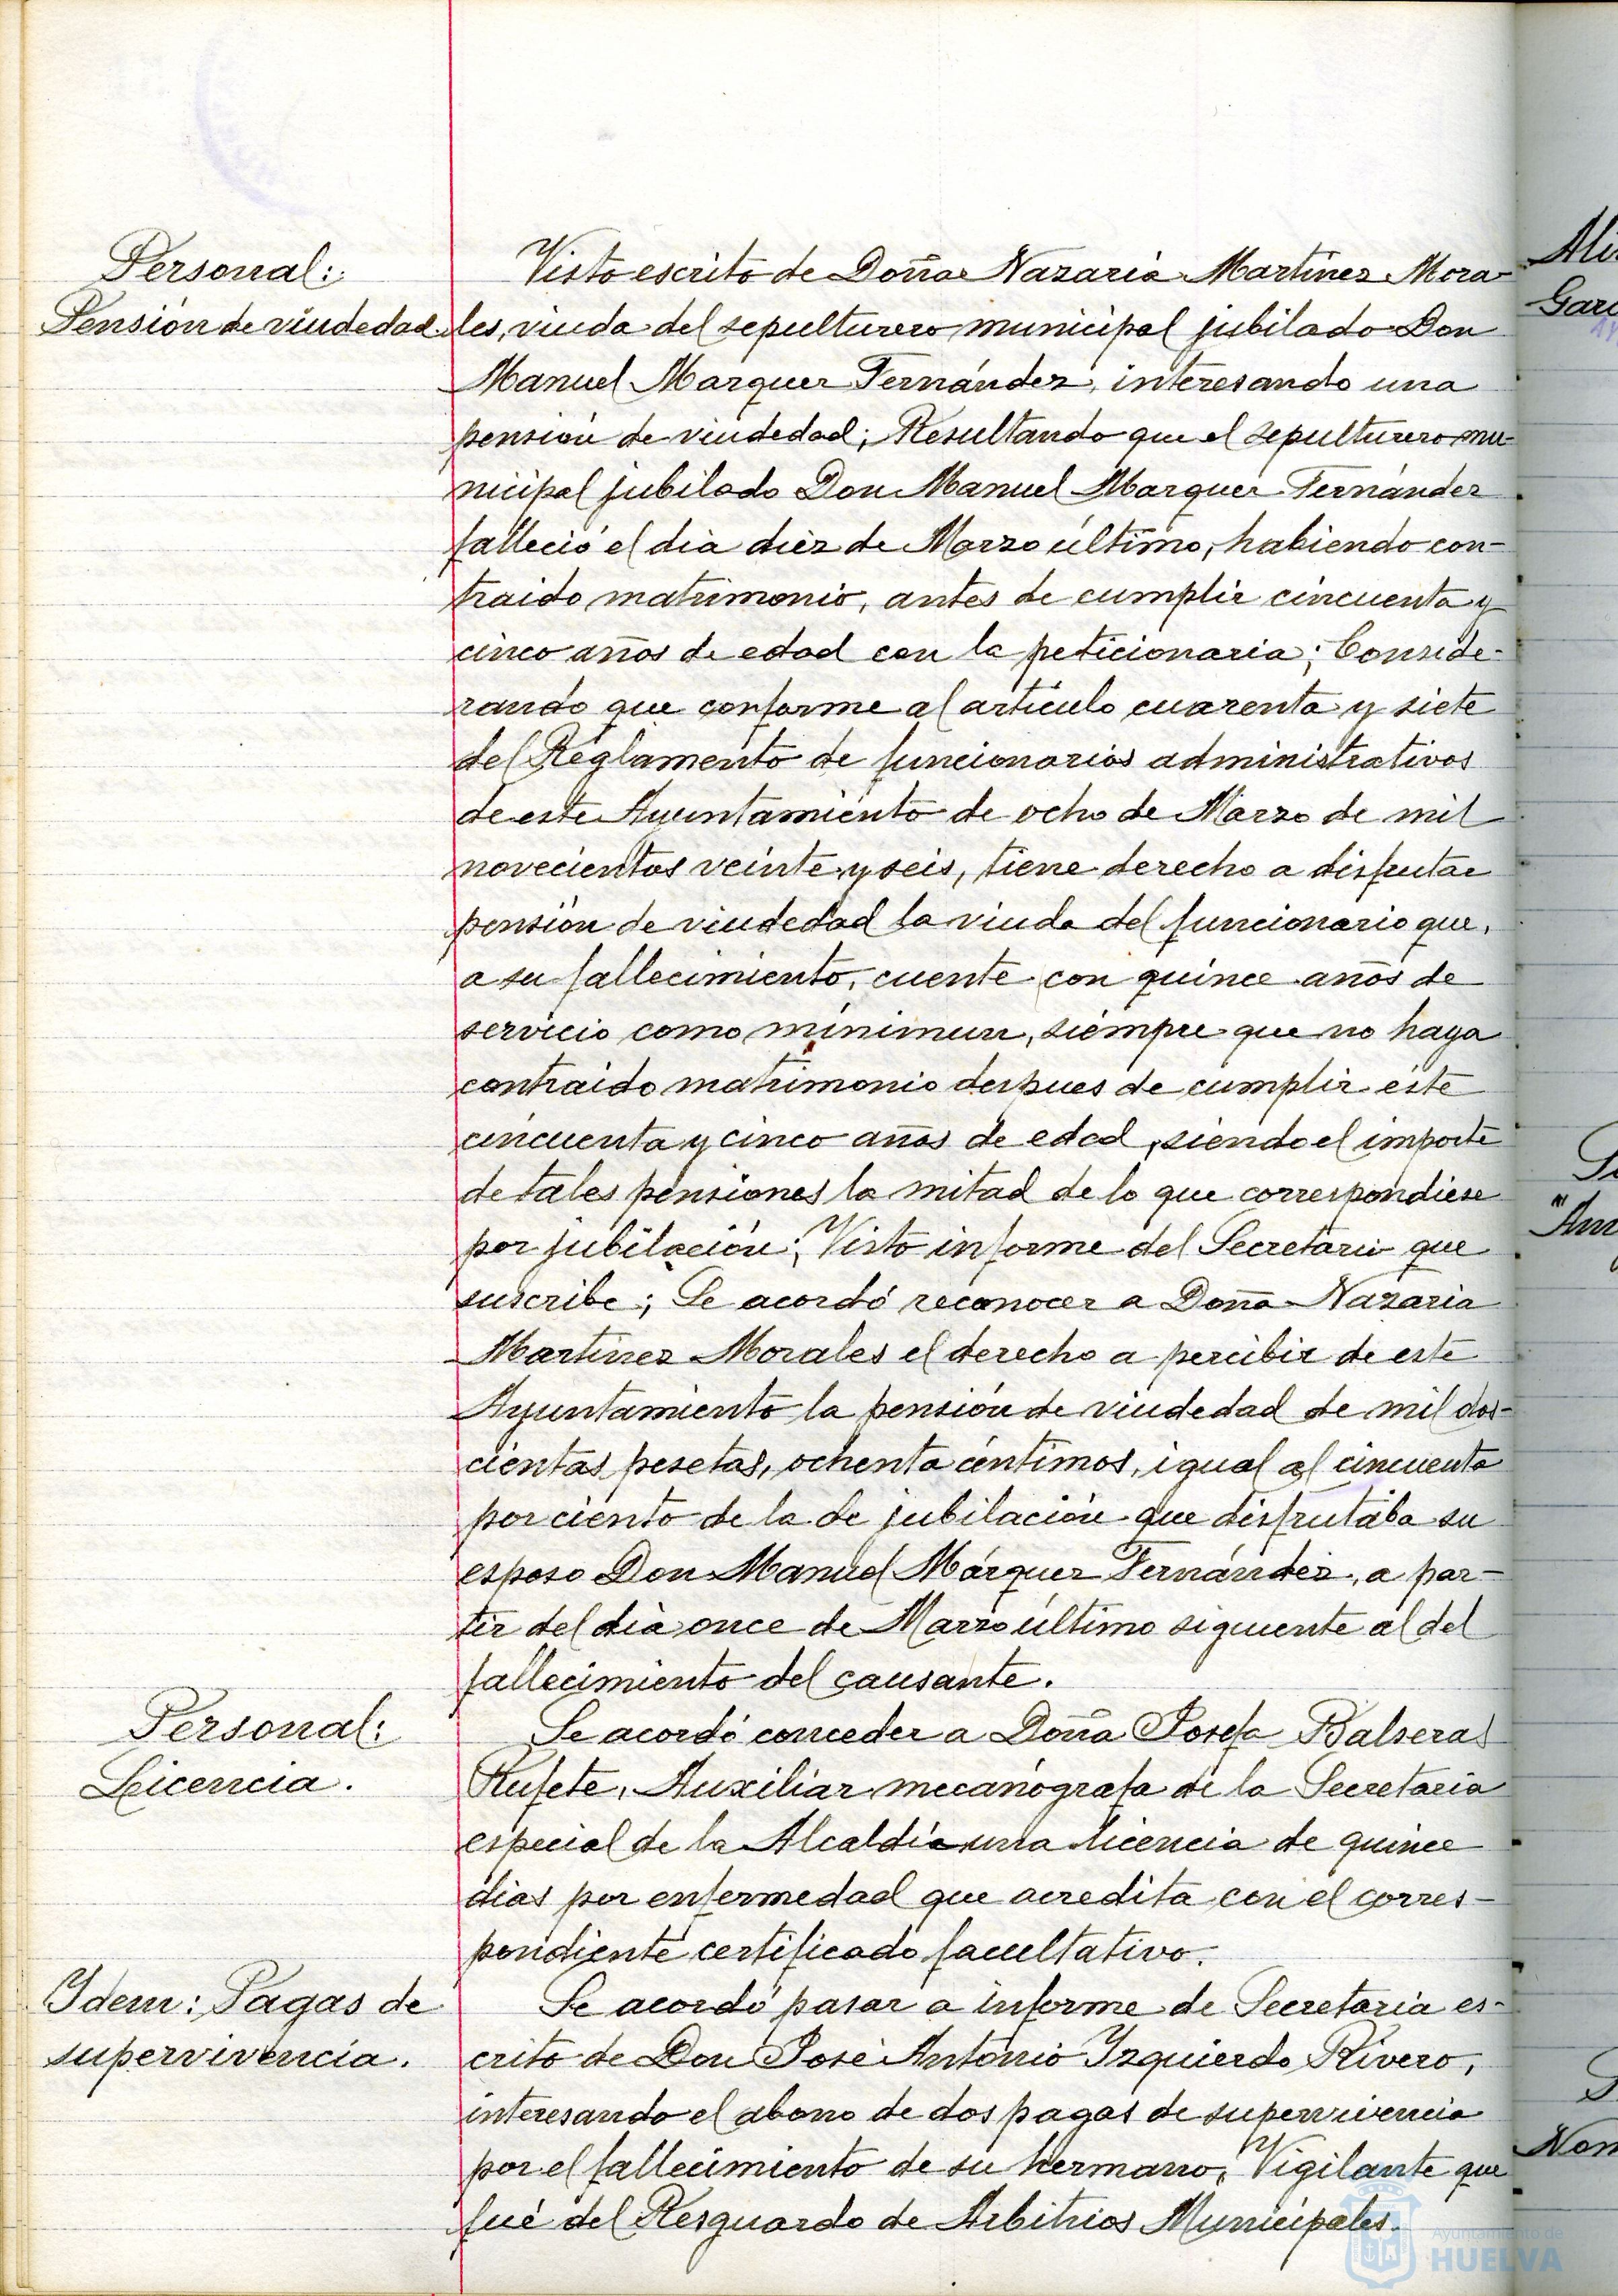 Personal:
Pensión de viudedad.
Visto escrito de Doña Nazaria Martínez Mora-
les, viuda del sepulturero municipal jubilado Don
Manuel Marquez Fernández, interesando una
pensión de viudedad; Resultando que el sepulturero mu-
nicipal jubilado Don Manuel Marquez Fernández
falleció el día diez de Marzo último, habiendo con-
traido matrimonio, antes de cumplir cincuenta y
cinco años de edad con la peticionaria; Conside-
rando que conforme al artículo cuarenta y siete
del Reglamento de funcionarios administrativos
de este Ayuntamiento de ocho de Marzo de mil
novecientos veinte y seis, tiene derecho a disfrutar
pensión de viudedad la viuda del funcionario que,
a su fallecimiento, cuente con quince años de
servicio como minimun, siempre que no haya
contraido matrimonio despues de cumplir éste
cincuenta y cinco años de edad, siendo el importe
de tales pensiones la mitad de lo que correspondiese
por jubilación; Visto informe del Secretario que
suscribe; Se acordó reconocer a Doña Nazaria
Martínez Morales el derecho a percibir de este
Ayuntamiento la pensión de viudedad de mil dos-
cientas pesetas, ochenta céntimos, igual al cincuenta
por ciento de la de jubilación que disfrutaba su
esposo Don Manuel Márquez Fernández, a par-
tir del día once de Marzo último siguiente al del
fallecimiento del causante.
Personal:
Licencia.
Se acordó conceder a Doña Josefa Balsera
Rufete, Auxiliar mecanógrafa de la Secretaría
especial de la Alcaldía una licencia de quince
días por enfermedad que acredita con el corres-
pondiente certificado facultativo.
Idem: Pagas de
supervivencia.
Se acordó pasar a informe de Secretaría es-
crito de Don José Antonio Izquierdo Rivero,
interesando el abono de dos pagas de supervivencia
por el fallecimiento de su hermano, Vigilante que
fué del Resguardo de Arbitrios Municipales.
Ayuntamiento de
HUELVA